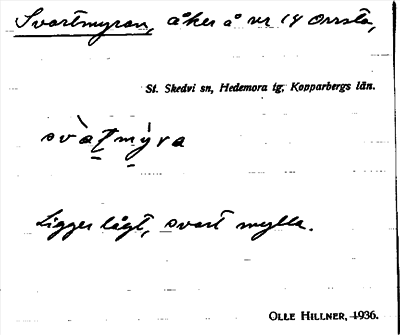 Svartmyran, åker å nr 14 Orrsta,
St. Skedvi sn, Hedemora tg, Kopparbergs län.
svàṯmỳra
Ligger lågt, svart mylla.
OLLE HILLNER, 1936.